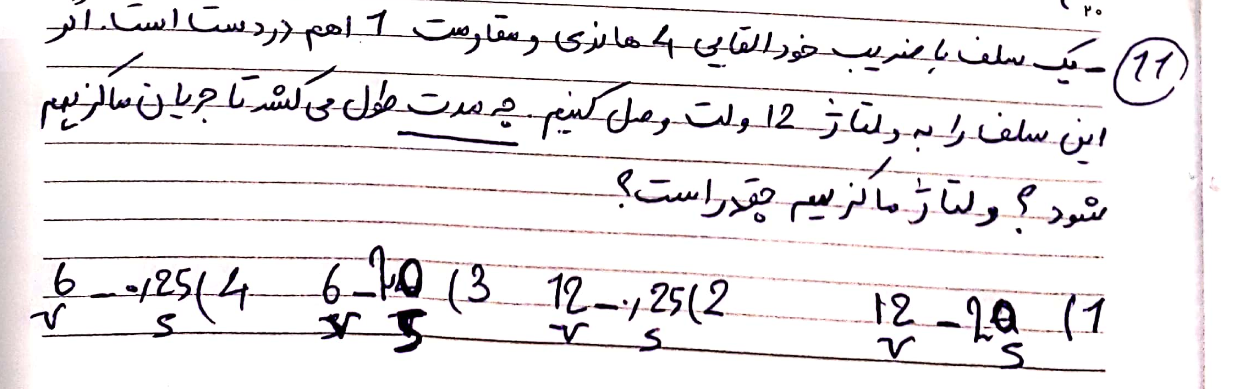 ۲۰
11 - یک سلف با ضریب خود القایی 4 هانری و مقاومت 1 اهم در دست است. اگر
این سلف را به ولتاژ 12 ولت وصل کنیم. چه مدت طول می کشد تا جریان ماکزیمم
شود؟ ولتاژ ماکزیمم چقدر است؟
1) 20 - 12 2) 0,25 - 12 3) 20 - 6 4) 0,25 - 6
s v s v s v s v